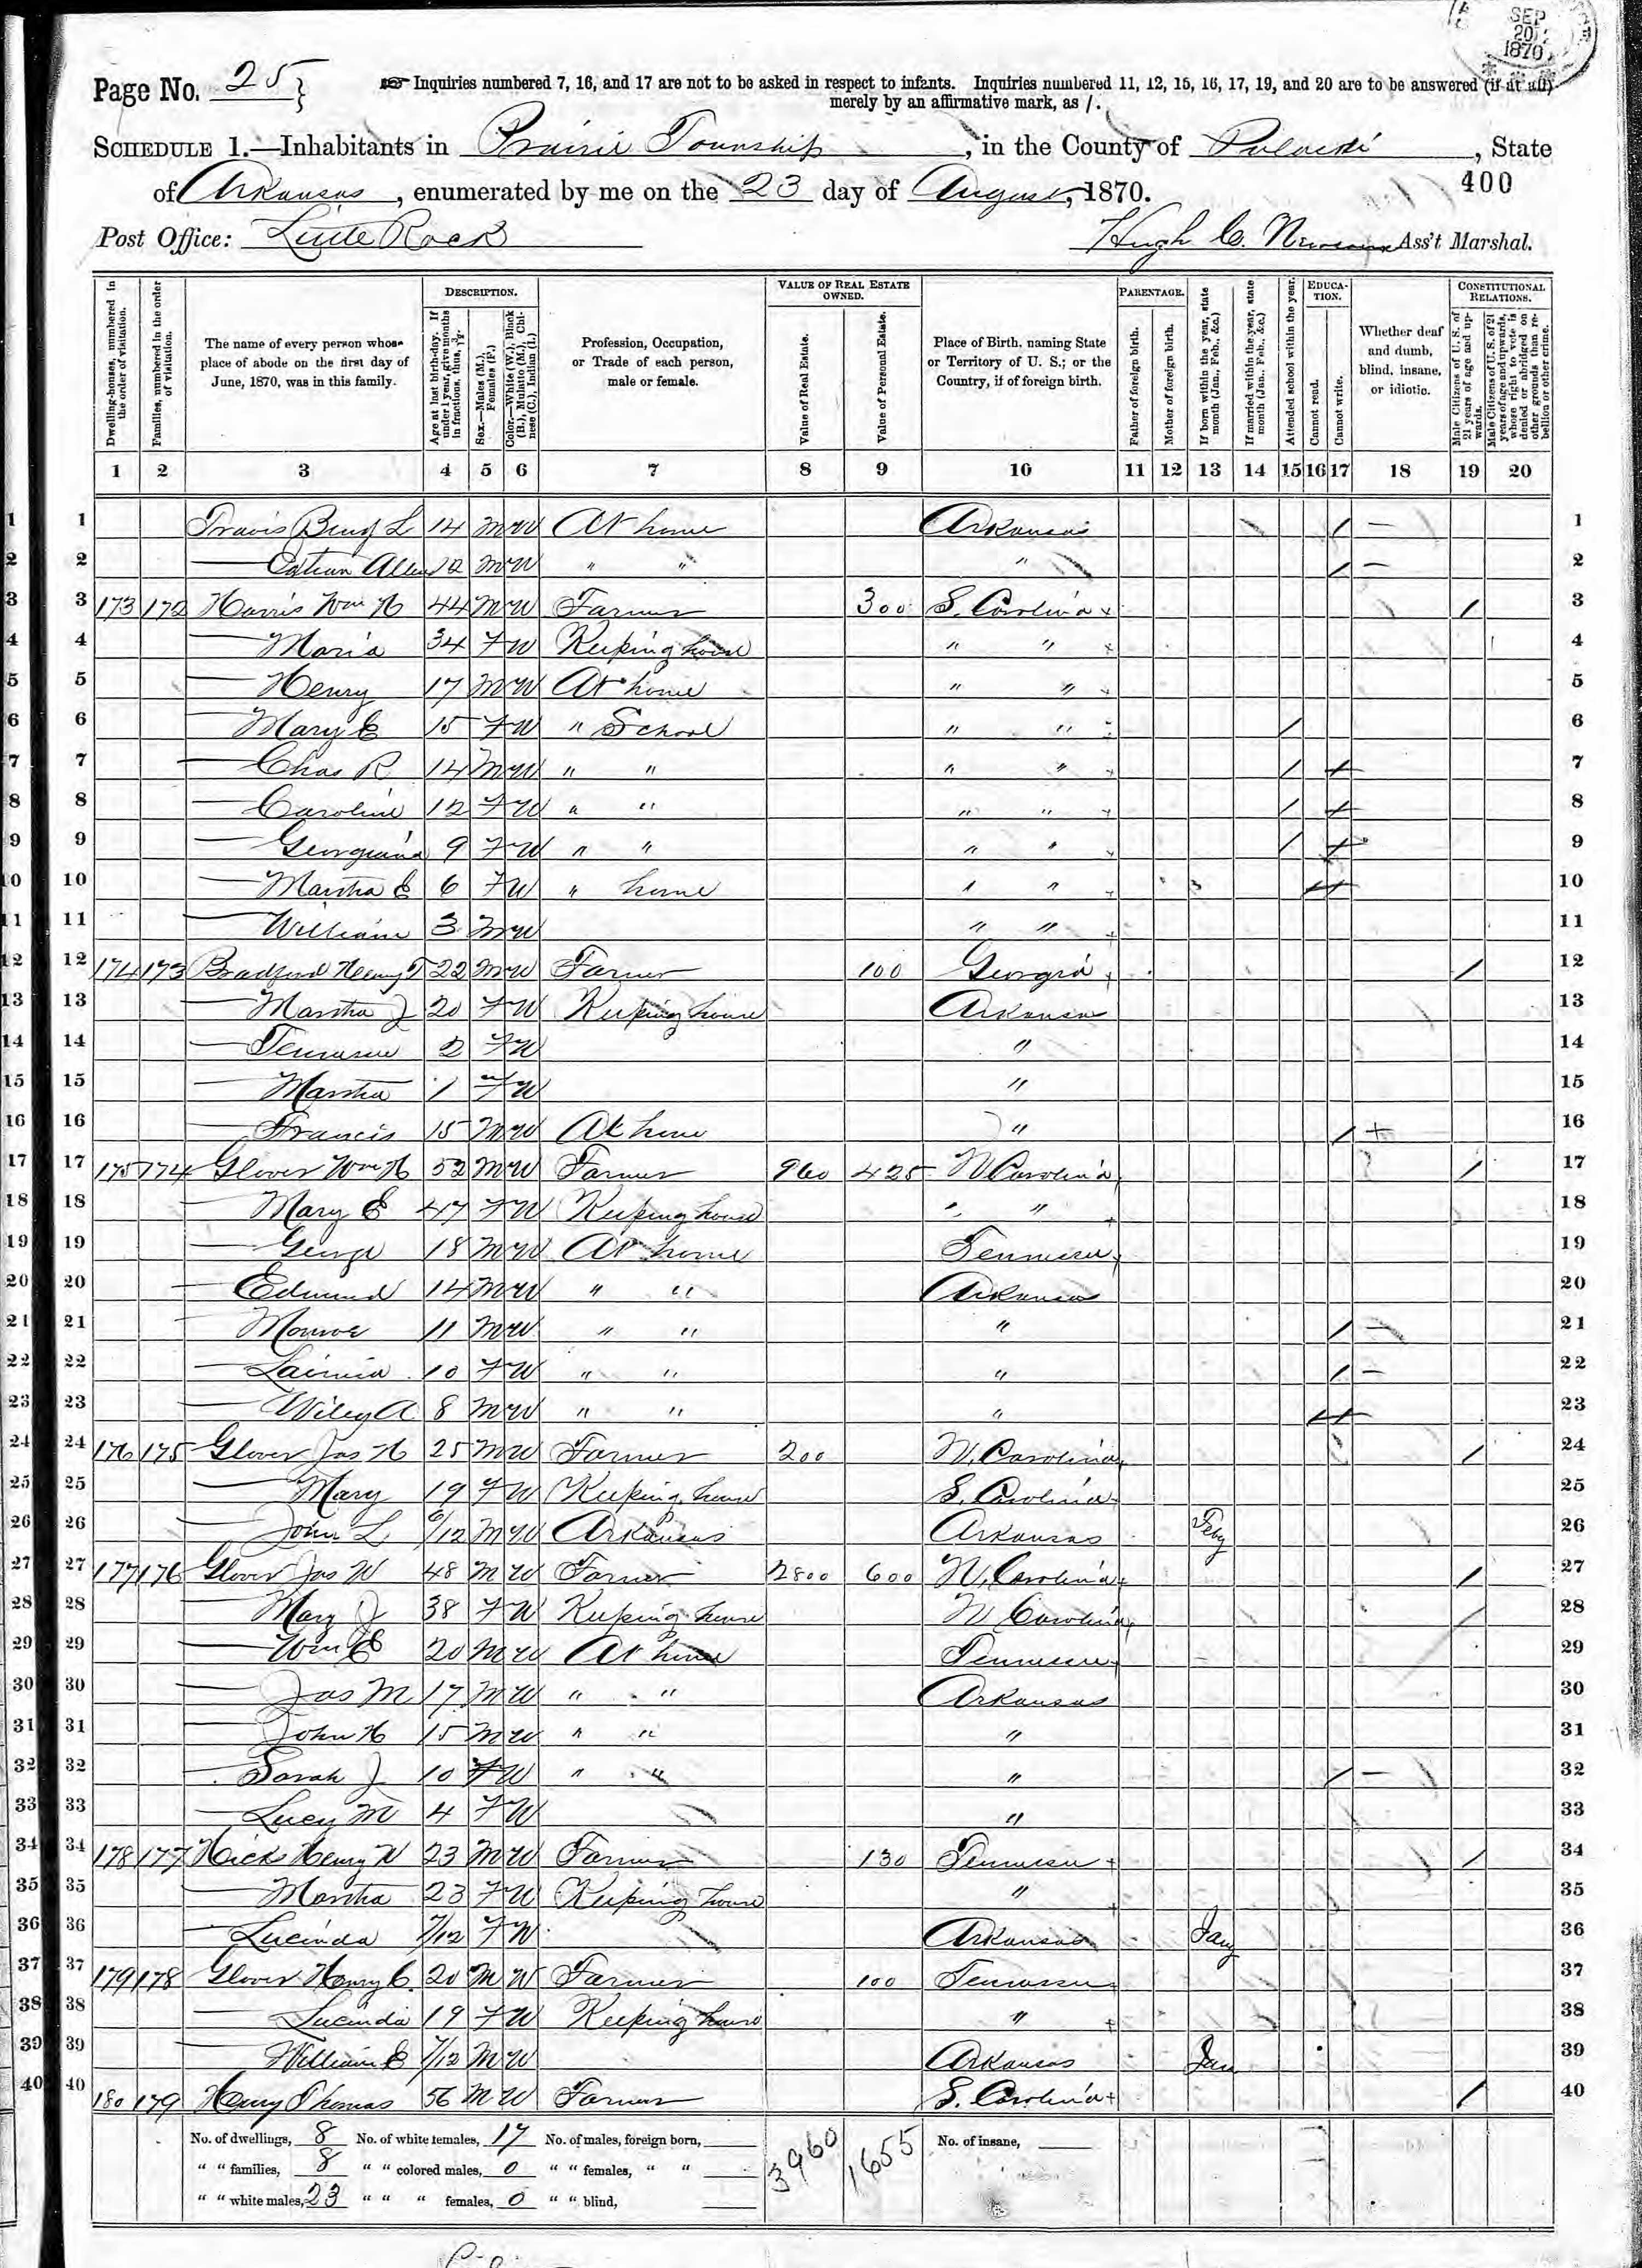 SEP 20 1870
Page No. 25
Inquiries numbered 7, 16, and 17 are not to be asked in respect to infants. Inquiries numbered 11, 12, 15, 16, 17, 19, and 20 are to be answered (if at all) merely by an affirmative mark, as /.
SCHEDULE 1.—Inhabitants in Prairie Township, in the County of Pulaski, State
of Arkansas, enumerated by me on the 23 day of August, 1870. 400
Post Office: Little Rock Hugh C. Ass't Marshal.
Dwelling-houses, numbered in the order of visitation.
Families, numbered in the order of visitation.
The name of every person whose place of abode on the first day of June, 1870, was in this family.
DESCRIPTION.
Age at last birth-day. If under 1 year, give months in fractions, thus, 3/12.
Sex.—Males (M.), Females (F.)
Color.—White (W.), Black (B.), Mulatto (M.), Chinese (C.), Indian (I.)
Profession, Occupation, or Trade of each person, male or female.
VALUE OF REAL ESTATE OWNED.
Value of Real Estate.
Value of Personal Estate.
Place of Birth, naming State or Territory of U. S.; or the Country, if of foreign birth.
PARENTAGE.
Father of foreign birth.
Mother of foreign birth.
If born within the year, state month (Jan., Feb., &c.)
If married within the year, state month (Jan., Feb., &c.)
Attended school within the year.
EDUCATION.
Cannot read.
Cannot write.
Whether deaf and dumb, blind, insane, or idiotic.
CONSTITUTIONAL RELATIONS.
Male Citizens of U. S. of 21 years of age and upwards.
Male Citizens of U. S. of 21 years of age and upwards, whose right to vote is denied or abridged on other grounds than rebellion or other crime.
1 2 3 4 5 6 7 8 9 10 11 12 13 14 15 16 17 18 19 20
1 Travis Benj L 14 M W At home Arkansas / 1
2 — Allen 12 M W " " " / 2
3 173 172 Harris Wm H 44 M W Farmer 300 S. Carolina / 3
4 — Maria 34 F W Keeping house " " 4
5 — Henry 17 M W At home " " 5
6 — Mary E 15 F W " School " " / 6
7 — Chas R 14 M W " " " " / / 7
8 — Caroline 12 F W " " " " / / 8
9 — Georgiana 9 F W " " " " / / 9
10 — Martha E 6 F W " home " " / / 10
11 — William 3 M W " " 11
12 174 173 Bradford Henry T 22 M W Farmer 100 Georgia / 12
13 — Martha J 20 F W Keeping house Arkansas 13
14 — Tennessee 2 F W " 14
15 — Martha 1 F W " 15
16 — Francis 15 M W At home " / + 16
17 175 174 Glover Wm H 52 M W Farmer 960 425 N Carolina / 17
18 — Mary E 47 F W Keeping house " " 18
19 — George 18 M W At home Tennessee 19
20 — Edmund 14 M W " " Arkansas 20
21 — Monroe 11 M W " " " / 21
22 — 10 F W " " " / 22
23 — Wiley A 8 M W " " " / / 23
24 176 175 Glover Jas H 25 M W Farmer 200 N. Carolina / 24
25 — Mary 19 F W Keeping house S. Carolina 25
26 — John L 6/12 M W Arkansas Arkansas Feby 26
27 177 176 Glover Jas W 48 M W Farmer 2800 600 N. Carolina / 27
28 — Mary J 38 F W Keeping house N Carolina / 28
29 — Wm E 20 M W At home Tennessee 29
30 — Jas M 17 M W " " Arkansas 30
31 — John H 15 M W " " " 31
32 — Sarah J 10 F W " " " / 32
33 — Lucy M 4 F W " 33
34 178 177 Hicks Henry W 23 M W Farmer 130 Tennessee / 34
35 — Martha 23 F W Keeping house " 35
36 — Lucinda 7/12 F W Arkansas Jany 36
37 179 178 Glover Henry C. 20 M W Farmer 100 Tennessee 37
38 — Lucinda 19 F W Keeping house " 38
39 — William E 7/12 M W Arkansas Jan 39
40 180 179 Henry Thomas 56 M W Farmer S. Carolina / 40
No. of dwellings, 8 No. of white females, 17 No. of males, foreign born, 3960 1655 No. of insane,
" " families, 8 " " colored males, 0 " " females, " "
" " white males, 23 " " " females, 0 " " blind,